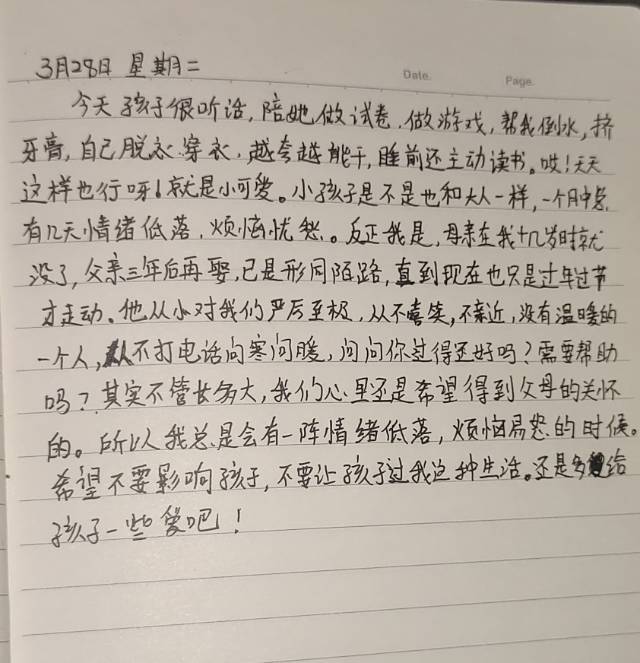 Date.
Page.
3月28日 星期二
今天孩子很听话,陪她做试卷、做游戏,帮我倒水,挤
牙膏,自己脱衣穿衣,越来越能干,睡前还主动读书。哎!天天
这样也行呀!就是小可爱。小孩子是不是也和大人一样,一个月中总
有几天情绪低落,烦恼忧愁。反正我是,母亲在我十几岁时就
没了,父亲三年后再娶,已是形同陌路,直到现在也只是过年过节
才走动。他从小对我们严厉至极,从不喜笑,不亲近,没有温暖的
一个人,从不打电话问寒问暖,问问你过得还好吗?需要帮助
吗?其实不管长多大,我们心里还是希望得到父母的关怀
的。所以我总是会有一阵情绪低落,烦恼易怒的时候。
希望不要影响孩子,不要让孩子过我这种生活。还是多给
孩子一些爱吧!